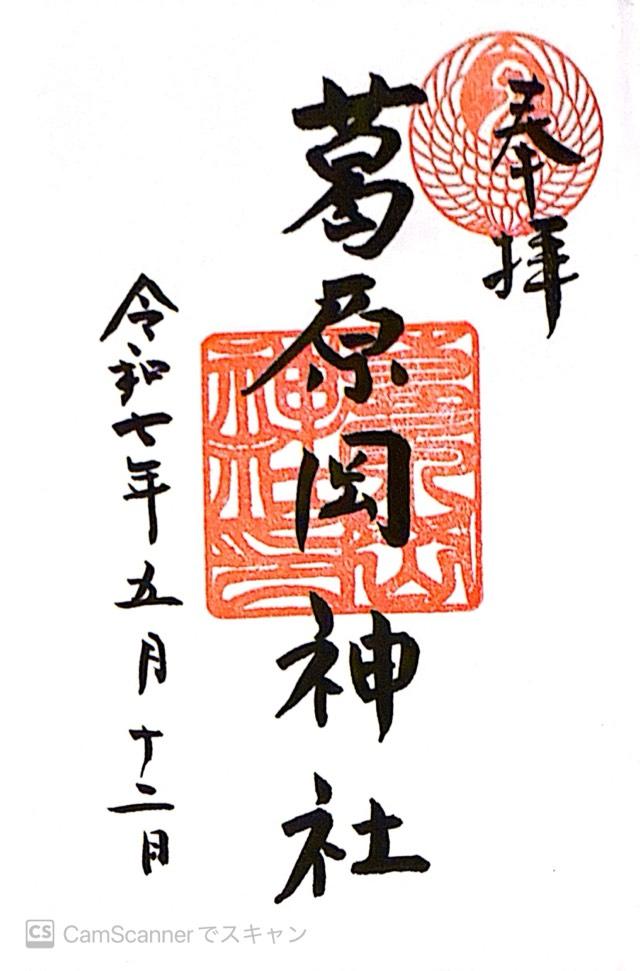 奉拝
葛原岡神社
令和七年五月十二日
CS CamScannerでスキャン